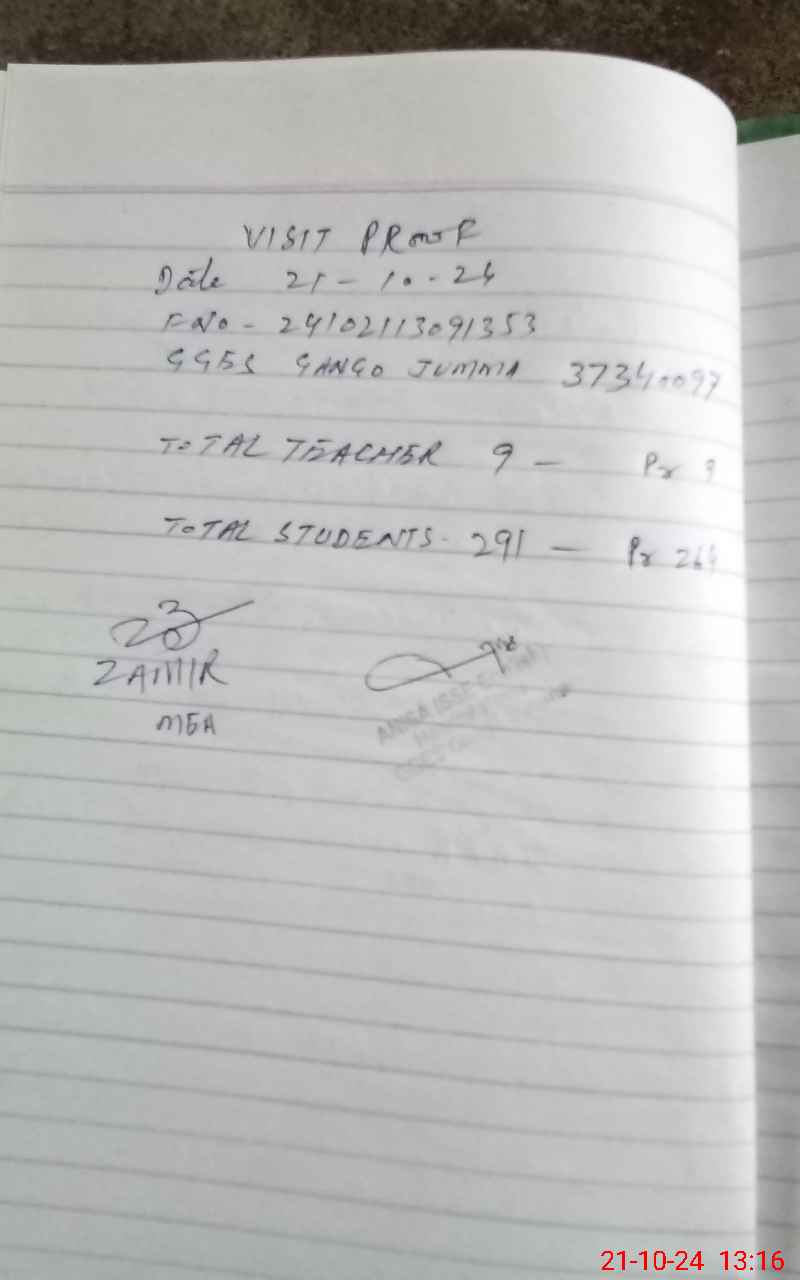 VISIT PROOF
Date 21-10-24
F No - 24102113091353
GGES GANGO JUMMA 37340097
TOTAL TEACHER 9 - Pr 9
TOTAL STUDENTS - 291 - Pr
ZAMIR
MEA
21-10-24 13:16